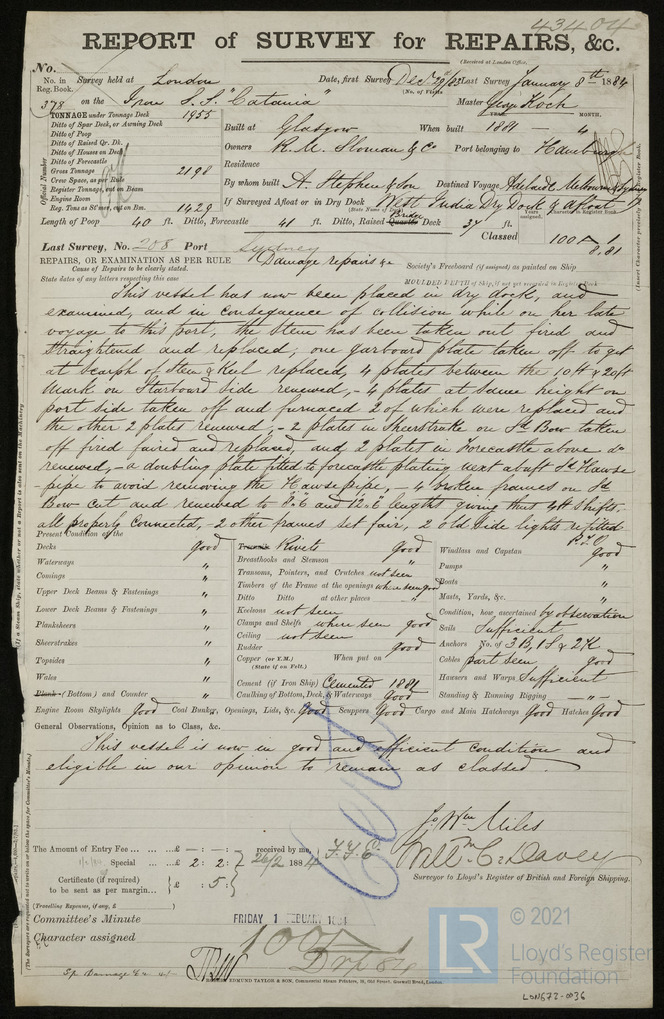 43404
REPORT of SURVEY for REPAIRS, &c.
(Received at London Office,
No.
No. in Reg. Book. Survey held at London Date, first Survey Decr 29/83 Last Survey January 8th 1884
(No. of Visits
378 on the Iron S.S. "Catania" Master Koch
TONNAGE under Tonnage Deck 1955
Ditto of Spar Deck, or Awning Deck
Ditto of Poop
Ditto of Raised Qr. Dk.
Ditto of Houses on Deck
Ditto of Forecastle
Gross Tonnage 2198
Crew Space, as per Rule
Register Tonnage, cut on Beam
Engine Room
Reg. Tons as St'mer, cut on Bm. 1429
Official Number
YEAR. MONTH.
Built at Glasgow When built 1881 - 4
Owners R. M. Sloman & Co Port belonging to Hamburg
Residence
By whom built A. Stephen & Son Destined Voyage Adelaide Melbourne & Sydney
If Surveyed Afloat or in Dry Dock West India Dry Dock & Afloat
(State Name of Dock)
Length of Poop 40 ft. Ditto, Forecastle 41 ft. Ditto, Raised Quarter Deck Bridge 37 ft.
Years assigned. Character in Register Book.
(Insert Character previously in Register Book.
Classed 100 A 1
8.81
Last Survey, No. 258 Port Sydney
REPAIRS, OR EXAMINATION AS PER RULE Damage repairs &c
Cause of Repairs to be clearly stated.
Society's Freeboard (if assigned) as painted on Ship
State dates of any letters respecting this case
MOULDED DEPTH of Ship, if not yet recorded in Register Book
This vessel has now been placed in dry dock, and
examined, and in consequence of collision while on her late
voyage to this port, the Stem has been taken out fired and
straightened and replaced, one garboard plate taken off to get
at scarph of Stem & Keel replaced, 4 plates between the 10 ft & 20 ft
mark on Starboard side renewed, - 4 plates at same height on
port side taken off and furnaced 2 of which were replaced and
the other 2 plates renewed, - 2 plates in Sheerstrake on Sd Bow taken
off fired faired and replaced, and 2 plates in Forecastle above do
renewed, - a doubling plate fitted to forecastle plating next abaft Sd Hawse
-pipe to avoid removing the Hawsepipe, - 4 broken frames on Sd
Bow cut and renewed to 8'.6" and 12'.6" lengths giving thus 4 ft shifts,
all properly connected, - 2 other frames set fair, 2 old side lights refitted
P.T.O
Present Condition of the
Decks good
Waterways "
Comings "
Upper Deck Beams & Fastenings "
Lower Deck Beams & Fastenings "
Planksheers "
Sheerstrakes "
Topsides "
Wales "
Plank (Bottom) and Counter "
Treenails Rivets Good
Breasthooks and Stemson "
Transoms, Pointers, and Crutches not seen
Timbers of the Frame at the openings where seen good
Ditto Ditto at other places "
Keelsons not seen
Clamps and Shelfs where seen good
Ceiling not seen
Rudder Good
Copper (or Y.M.) When put on
(State if on Felt.)
Cement (if Iron Ship) Cemented 1881
Caulking of Bottom, Deck, & Waterways Good
Windlass and Capstan Good
Pumps "
Boats "
Masts, Yards, &c. "
Condition, how ascertained by observation
Sails Sufficient
Anchors No. of 3 B, 1 S & 2 K
Cables part seen good
Hawsers and Warps Sufficient
Standing & Running Rigging - " -
Engine Room Skylights Good Coal Bunker, Openings, Lids, &c. Good Scuppers Good Cargo and Main Hatchways Good Hatches Good
General Observations, Opinion as to Class, &c.
This vessel is now in good and efficient condition and
eligible in our opinion to remain as classed.
Cert
Jo Wm Miles
Willm C. Davey
Surveyor to Lloyd's Register of British and Foreign Shipping.
The Amount of Entry Fee ... ... £ - : - : - received by me,
Special ... ... £ 2 : 2 : 26/2 1884
Certificate (if required) to be sent as per margin... £ : 5 :
(Travelling Expenses, if any, £ )
Committee's Minute FRIDAY 1 FEBUARY 1884
Character assigned 100 A 1
DRW
(If a Steam Ship, state whether or not a Report is also sent on the Machinery
(The Surveyors are requested not to write on or below the space for Committee's Minute.)
EDMUND TAYLOR & SON, Commercial Steam Printers, 19, Old Street, Goswell Road, London.
LR
© 2021
Lloyd's Register
Foundation
LON672-0036